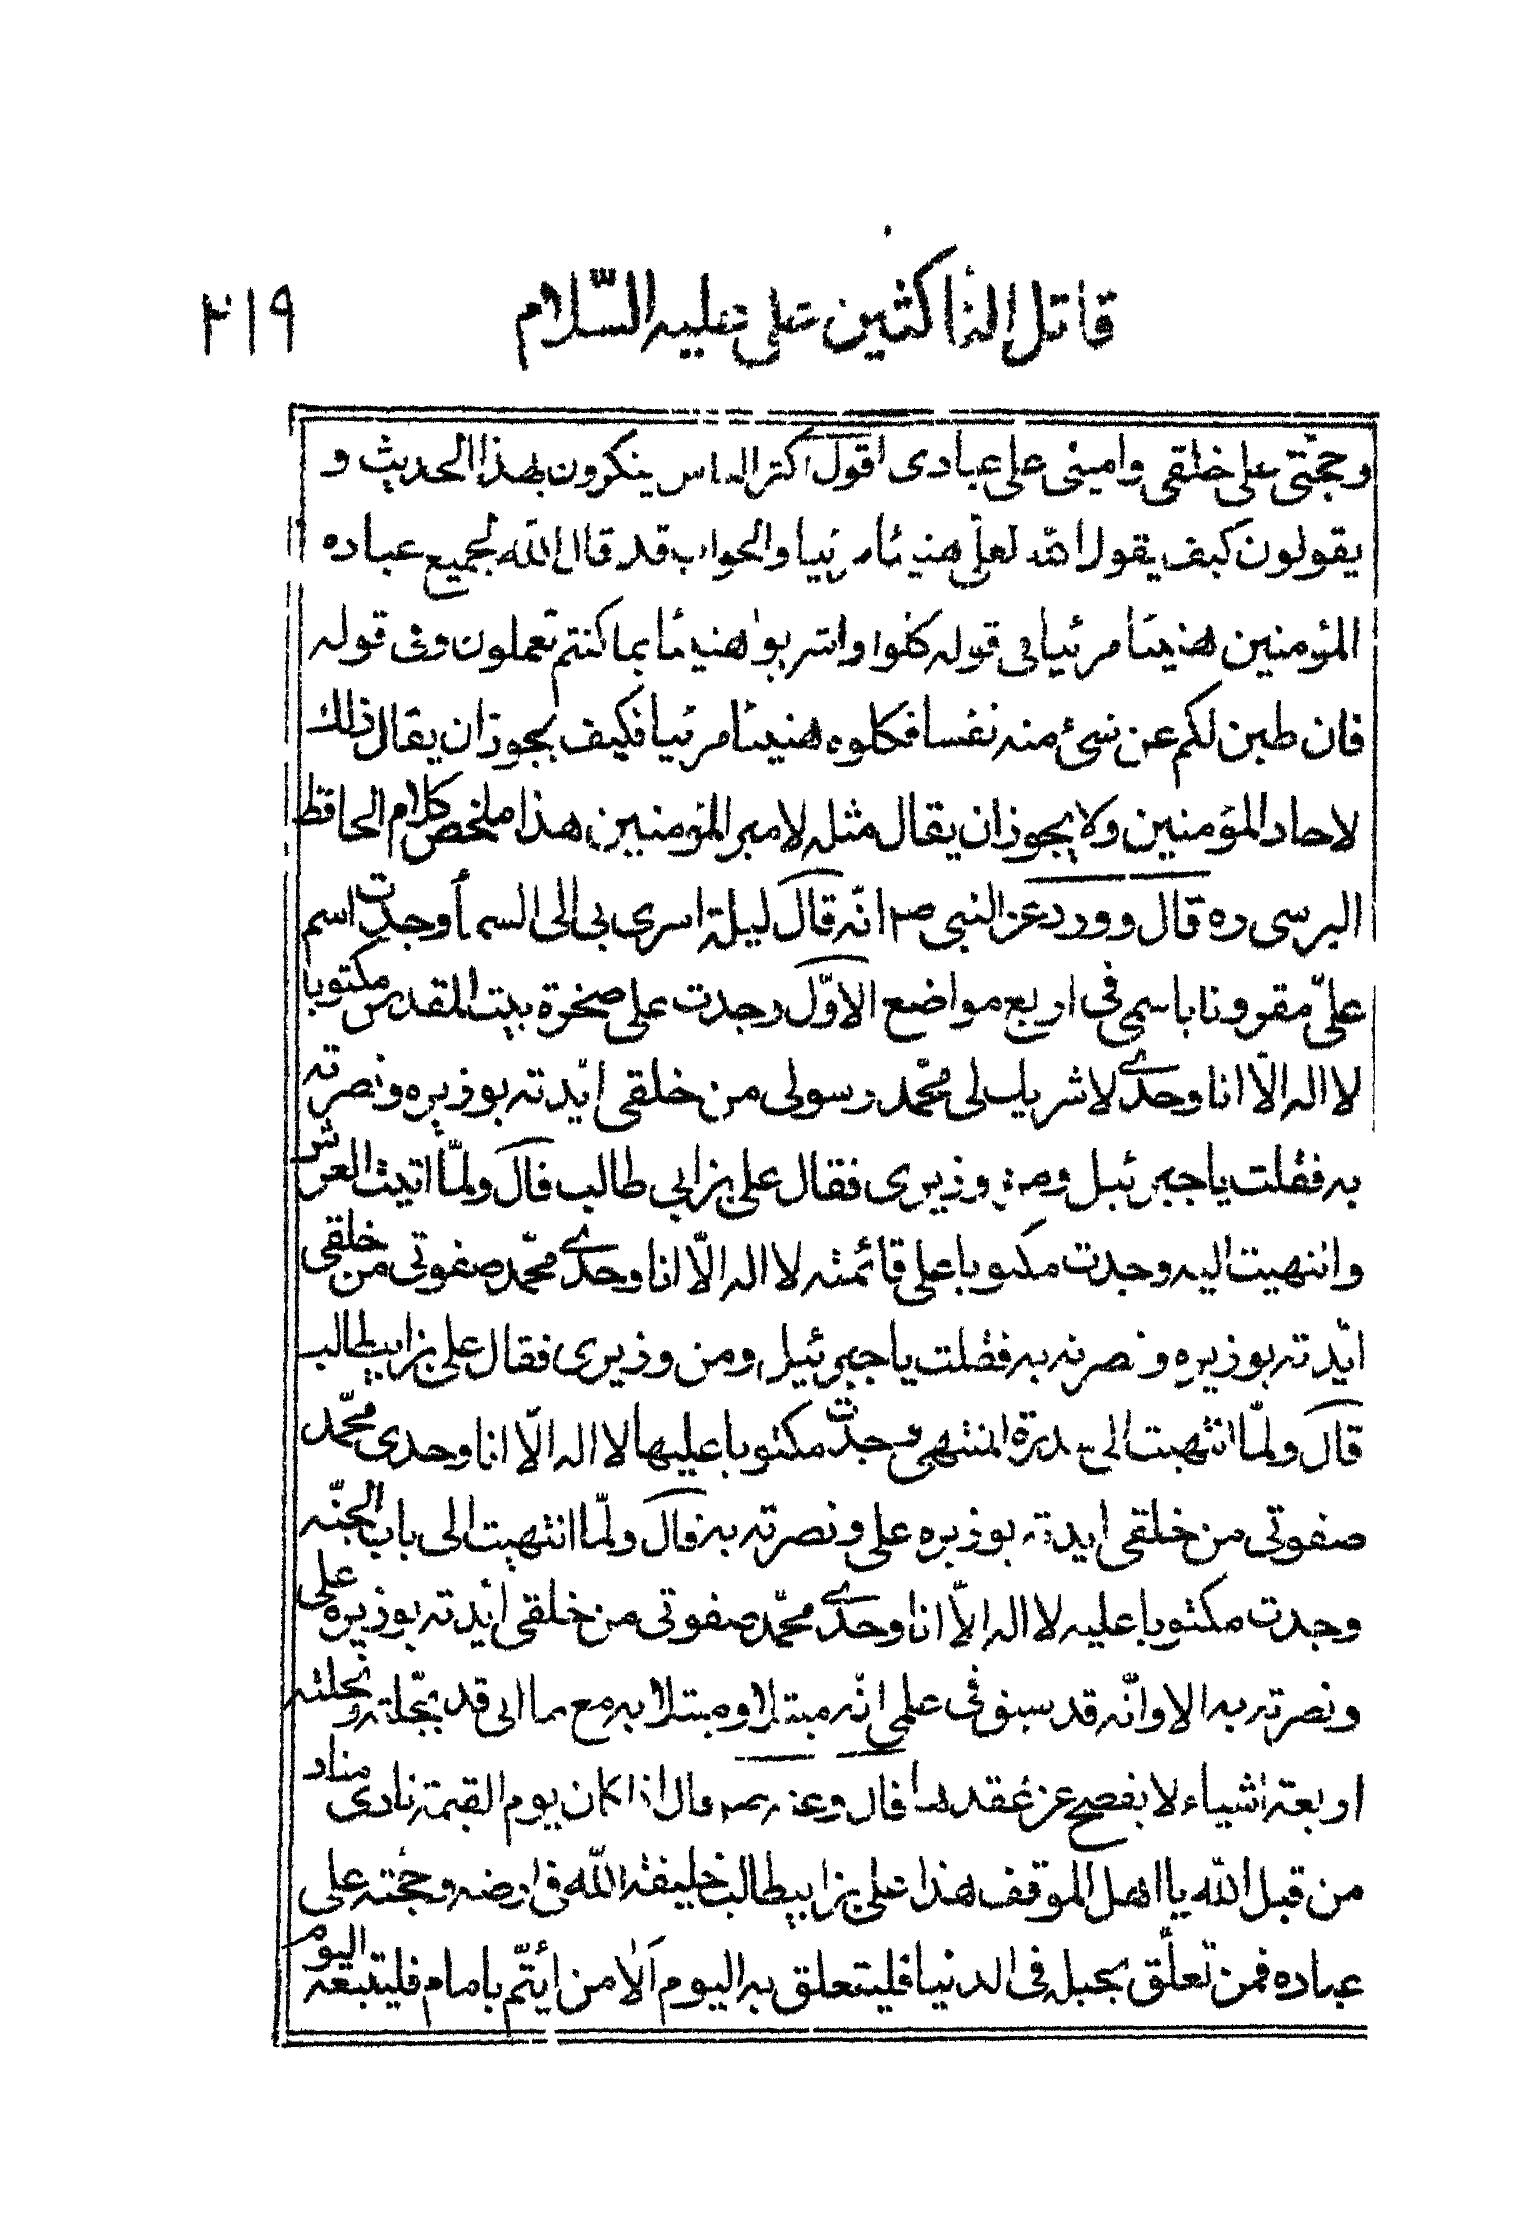 قاتل الناكثين علي عليه السّلام ٢١٩
وحجّتي على خلقي واميني على عبادي اقول اكثر الناس ينكرون لهذا الحديث و
يقولون كيف يقول الله لعليّ هنيئا مريئا والجواب قد قال الله لجميع عباده
المؤمنين هنيئا مريئا في قوله كلوا واشربوا هنيئا بما كنتم تعملون وفي قوله
فان طبن لكم عن شئ منه نفسا فكلوه هنيئا مريئا فكيف يجوز ان يقال ذلك
لاحاد المؤمنين ولا يجوز ان يقال مثله لامير المؤمنين هذا ملخص كلام الحافظ
البرسي ره قال وورد عن النبي ص انّه قال ليلة اسري بي الى السمأ وجدت اسم
عليّ مقرونا باسمي في اربع مواضع الاوّل وجدت على صخرة بيت المقدس مكتوبا
لا اله الّا انا وحدي لا شريك لي محمّد رسولي من خلقي ايّدته بوزيره ونصرته
به فقلت يا جبرئيل ومن وزيري فقال علي بن ابي طالب قال ولمّا اتيت العرش
وانتهيت اليه وجدت مكتوبا على قائمته لا اله الّا انا وحدي محمّد صفوتي من خلقي
ايّدته بوزيره ونصرته به فقلت يا جبرئيل ومن وزيري فقال علي بن ابيطالب
قال ولمّا انتهيت الى سدرة المنتهى وجدت مكتوبا عليها لا اله الّا انا وحدي محمّد
صفوتي من خلقي ايدته بوزيره علي ونصرته به قال ولمّا انتهيت الى باب الجنّه
وجدت مكتوبا عليه لا اله الّا انا وحدي محمّد صفوتي من خلقي ايّدته بوزيره علي
ونصرته به الا وانّه قد سبق في علمي انّه مبتلا ومبتلا به مع ما اني قد نحّلته ونحلته
اربعة اشياء لا يفصح عن عقدها قال وعنه ص قال اذا كان يوم القيمة نادى مناد
من قبل الله يا اهل الموقف هذا علي بن ابيطالب خليفة الله في ارضه وحجّته على
عباده فمن تعلّق بحبله في الدنيا فليتعلق به اليوم ألا من ايتمّ بامام فليتبعه اليوم